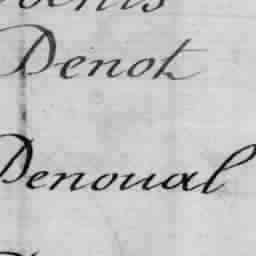 Denot
Denoual